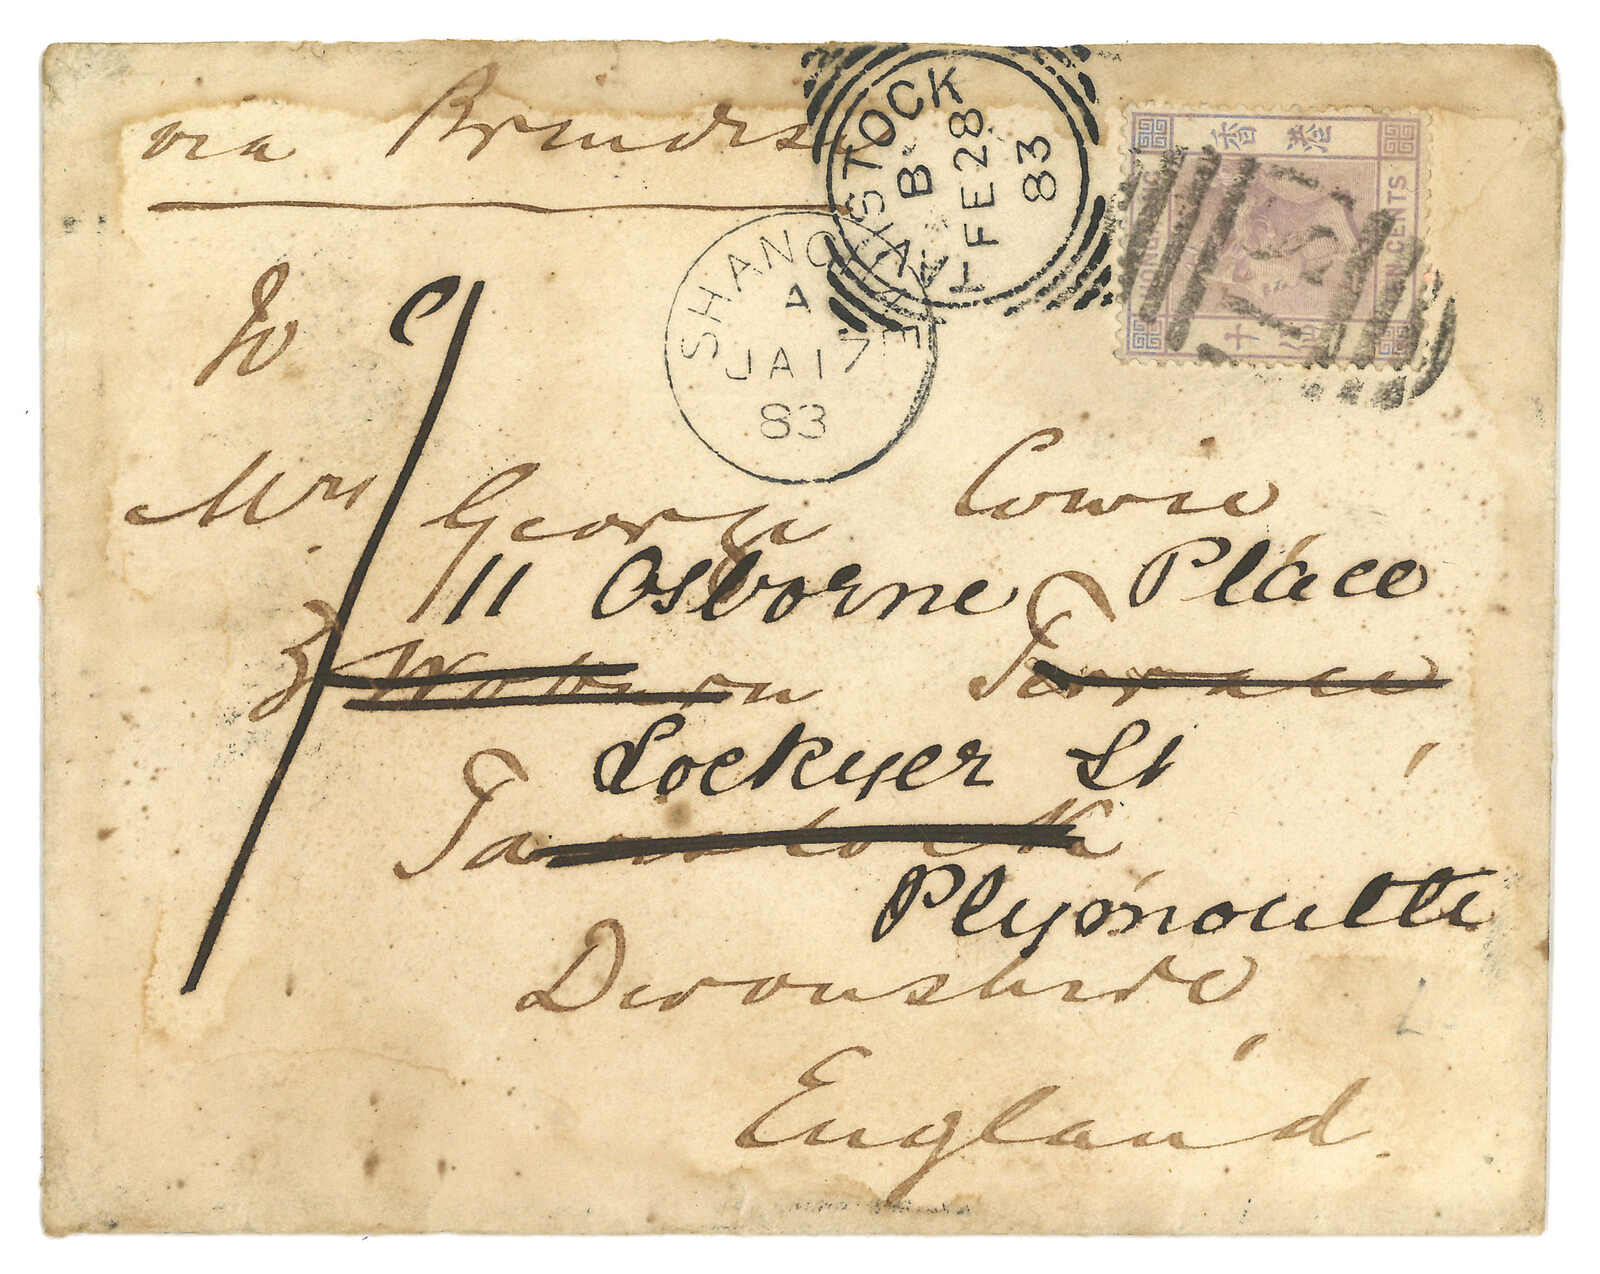 via Brindisi
TAVISTOCK
B
FE 28
83
香港
HONG KONG
TEN CENTS
SHANGHAE
A
JA 17
83
To
Mrs George Cowie
11 Osborne Place
3 Woburn Terrace
Lockyer St
Tavistock
Plymouth
Devonshire
England.